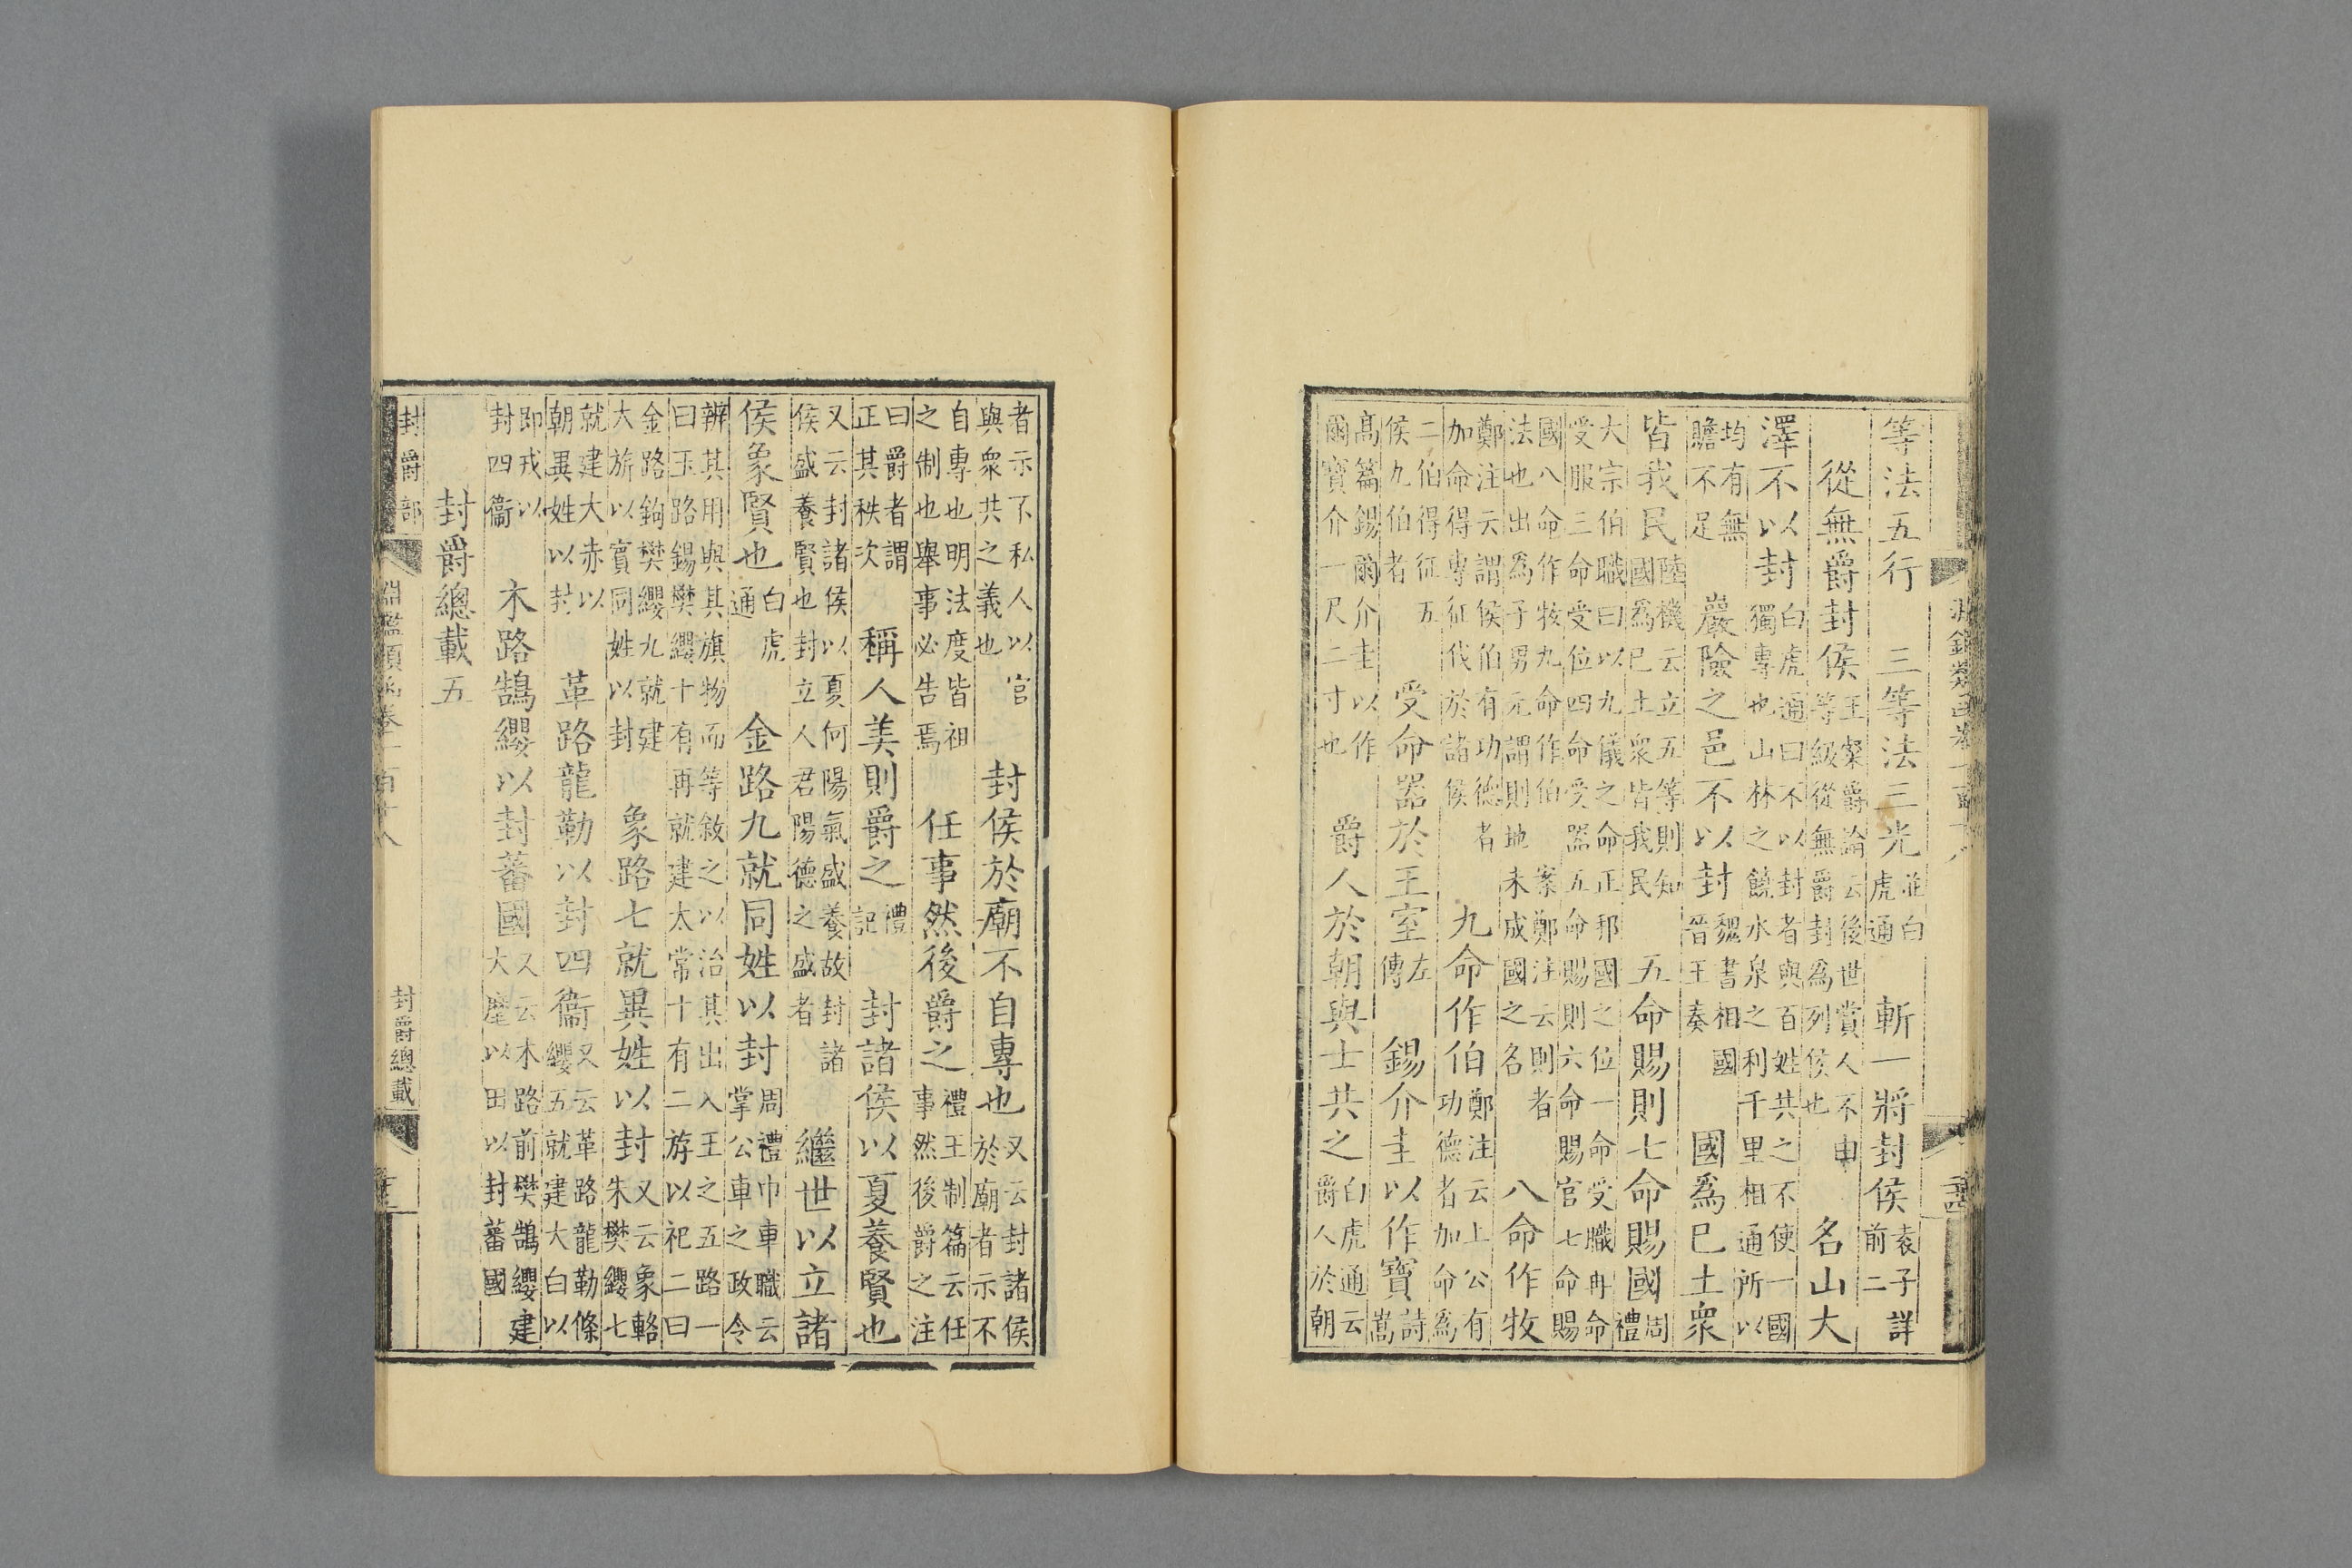 等法五行　三等法三光並白虎通　斬一將封侯袁子詳前二
從無爵封侯王粲爵論云後世賞人不由等級從無爵封爲列侯也　名山大
澤不以封白虎通曰不以封者與百姓共之不使一國獨專也山林之饒水泉之利千里相通所以
均有無贍不足　巖險之邑不以封魏書相國晉王奏　國爲已土衆
皆我民陸機云立五等則知國爲已土衆皆我民　五命賜則七命賜國周禮
大宗伯職曰以九儀之命正邦國之位一命受職冉命受服三命受位四命受器五命賜則六命賜官七命賜
國八命作牧九命作伯案鄭注云則者法也出爲子男元謂則地未成國之名　八命作牧
鄭注云謂侯伯有功德者加命得專征伐於諸侯　九命作伯鄭注云上公有功德者加命爲
二伯得征五侯九伯者　受命器於王室左傳　錫介圭以作寶詩嵩
高篇錫爾介圭以作爾寶介一尺二寸也　爵人於朝與士共之白虎通云爵人於朝
者示不私人以官與衆共之義也　封侯於廟不自專也又云封諸侯於廟者示不
自專也明法度皆祖之制也舉事必告焉　任事然後爵之禮王制篇云任事然後爵之注
曰爵者謂正其秩次　稱人美則爵之禮記　封諸侯以夏養賢也
又云封諸侯以夏何陽氣盛養故封諸侯盛養賢也封立人君陽德之盛者　繼世以立諸
侯象賢也白虎通　金路九就同姓以封周禮巾車職云掌公車之政令
辨其用與其旗物而等敘之以治其出入王之五路一曰玉路錫樊纓十有再就建太常十有二斿以祀二曰
金路鉤樊纓九就建大旂以賓同姓以封　象路七就異姓以封又云象輅朱樊纓七
就建大赤以朝異姓以封　革路龍勒以封四衞又云革路龍勒條纓五就建大白以
即戎以封四衞　木路鵠纓以封蕃國又云木路前樊鵠纓建大麾以田以封蕃國
封爵總載五
封爵部　淵鑑類函卷一百十八　封爵總載